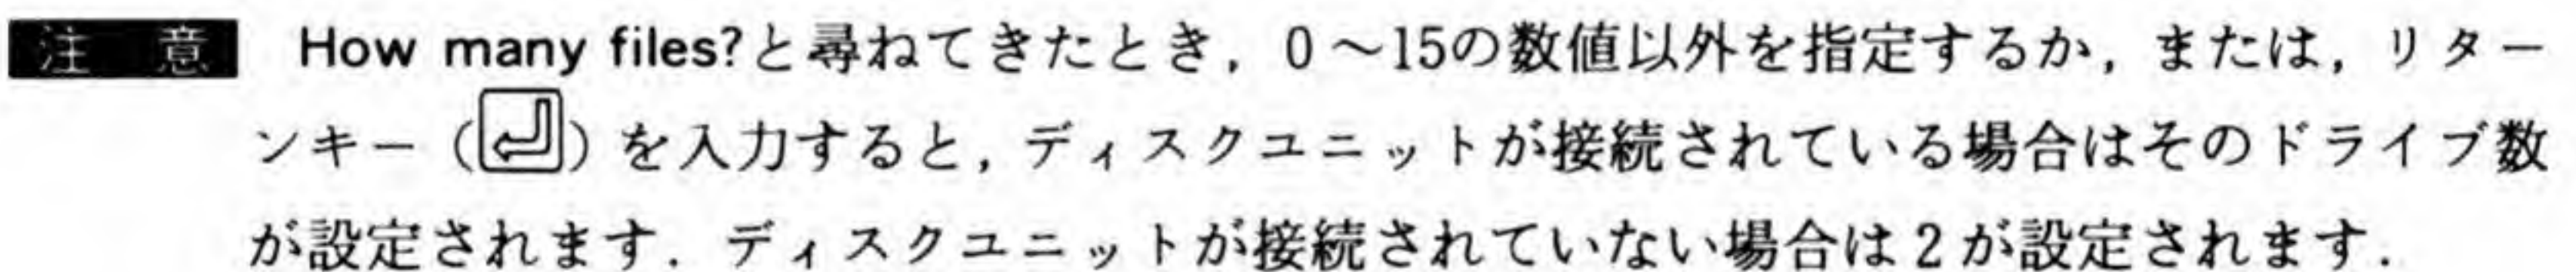 注　意　How many files?と尋ねてきたとき，0～15の数値以外を指定するか，または，リター
ンキー（⏎）を入力すると，ディスクユニットが接続されている場合はそのドライブ数
が設定されます．ディスクユニットが接続されていない場合は2が設定されます．